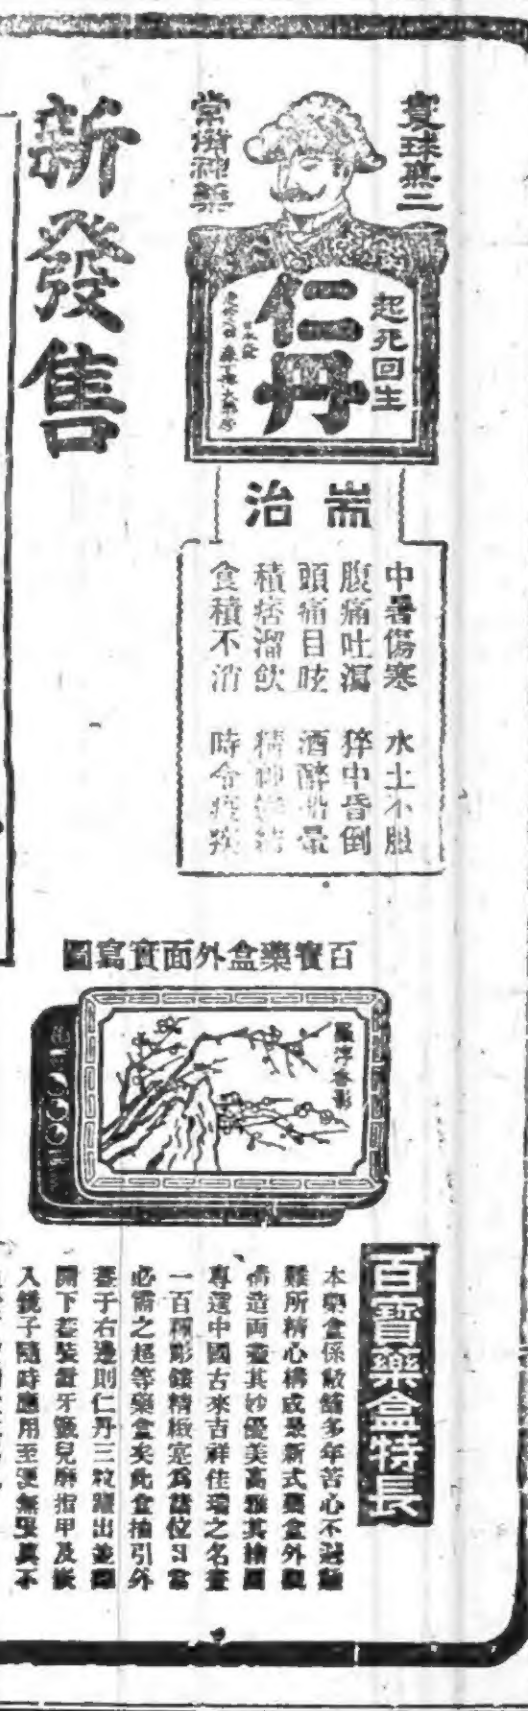 寰球無二
起死回生
仁丹
常備神藥
耑治
中暑傷寒 水土不服
腹痛吐瀉 猝中昏倒
頭痛目眩 酒醉船暈
積痞溜飲 精神
食積不消 時令疫疾
新發售
百寶藥盒外面實寫圖
羅浮香影
百寶藥盒特長
本藥盒係敝舖多年苦心不避艱
難所精心構成最新式藥盒外觀
構造兩蓋其妙優美高雅其繪圖
專選中國古來吉祥佳瑞之名畫
一百種彫鏤精緻寔為諸位日常
必需之超等藥盒矣此盒抽引外
蓋于右邊則仁丹三粒躍出並
開下蓋裝置牙籤兒磨指甲及嵌
入鏡子隨時應用至便無